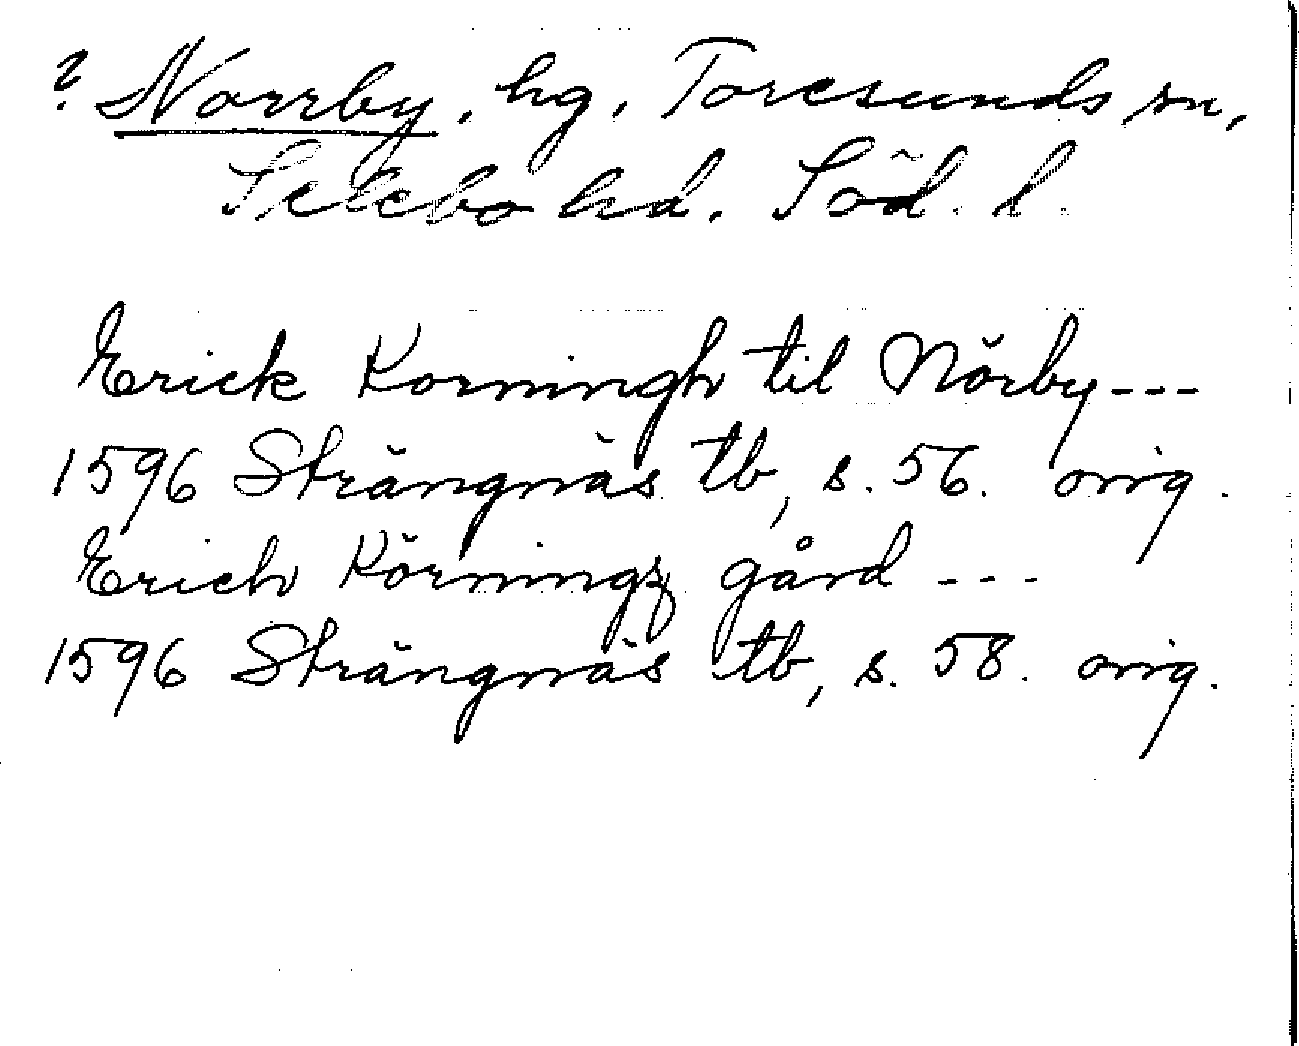 ? Norrby, hg, Toresunds sn,
Selebo hd. Söd. l.
Erick Korningh til Nörby---
1596 Strängnäs tb, s. 56. orig.
Erich Körningz gård ---
1596 Strängnäs tb, s. 58. orig.